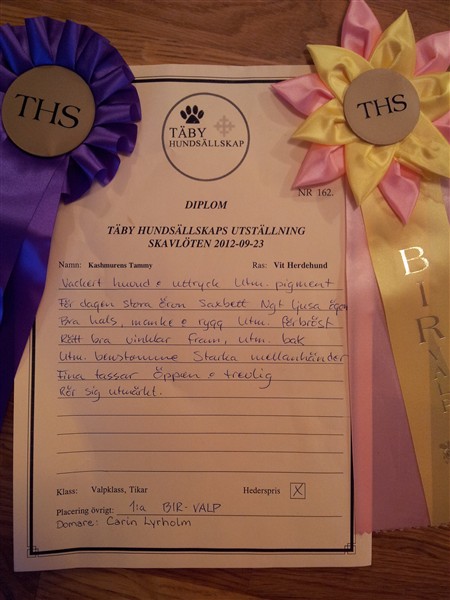 THS
THS
TÄBY
HUNDSÄLLSKAP
NR 162.
DIPLOM
TÄBY HUNDSÄLLSKAPS UTSTÄLLNING
SKAVLÖTEN 2012-09-23
Namn: Kashmurens Tammy Ras: Vit Herdehund
Vackert huvud & uttryck Utm. pigment
För dagen stora öron Saxbett Ngt ljusa ögon
Bra hals, manke & rygg Utm. förbröst
Rätt bra vinklar fram, utm. bak
Utm. benstomme Starka mellanhänder
Fina tassar Öppen & trevlig
Rör sig utmärkt.
Klass: Valpklass, Tikar Hederspris X
Placering övrigt: 1:a BIR-VALP
Domare: Carin Lyrholm
BIR VALP